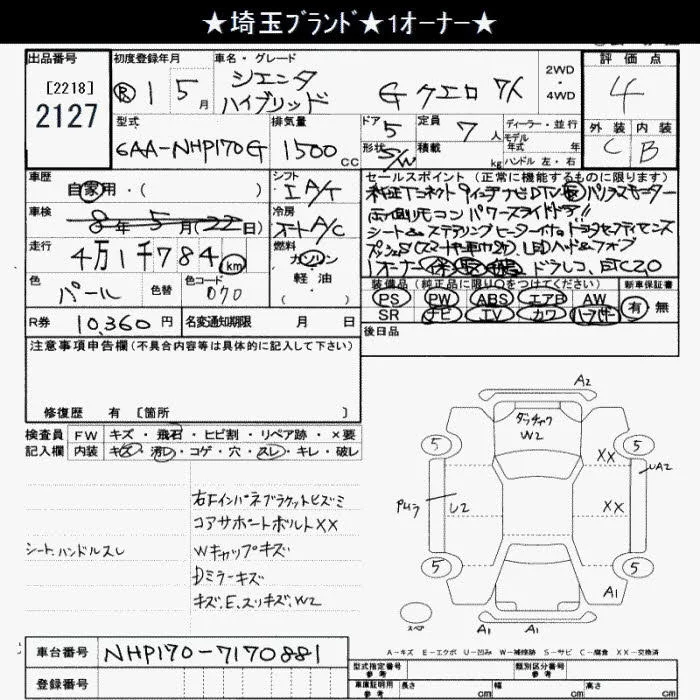 ★埼玉ﾌﾞﾗﾝﾄﾞ★1オーナー★
出品番号
[2218]
2127
初度登録年月
R 1 年 5 月
車名・グレード
シエンタ
ハイブリッド
G クエロ 7人
2WD
・
4WD
評価点
4
外装 内装
C B
型式
6AA-NHP170G
排気量
1500 CC
ドア 5
形状 S/W
定員 7 人
積載 kg
ディーラー・並行
モデル
年式 年
ハンドル 左・右
車歴
自家用・( )
シフト
IA/T
車検
8年5月(22日)
冷房
オートA/C
走行
4万1千784 km
燃料
ガソリン
・
軽油
( )
色
パール
色替
色コード
070
R券 10,360 円
名変通知期限 月 日
セールスポイント (正常に機能するものに限ります)
純正Tコネクト9インチナビDTV パノラミックモーター
両側リモコンパワースライドドア!!
シート&ステアリングヒーター付 トヨタセーフティセンス
LEDヘッド&フォグ
1オーナー 保 取 ドラレコ、ETC2.0
装備品 (純正品に限り○をつけてください)
PS PW ABS エアB AW
SR ナビ TV カワ
新車保証書
有 無
後日品
注意事項申告欄(不具合内容等は具体的に記入して下さい)
修復歴 有 〔箇所 〕
検査員 FW キズ・飛石・ヒビ割・リペア跡・×要
記入欄 内装 キズ・汚レ・コゲ・穴・スレ・キレ・破レ
右Fインパネブラケットヒズミ
コアサポートボルトXX
シート、ハンドルスレ
Wキャップキズ
Dミラーキズ
キズ、E、スリキズ、W2
A2
W2
5
5
XX
UA2
U2
XX
5
5
A1
スペア
A1 A1
A-キズ E-エクボ U-凹み W-補修跡 S-サビ C-腐食 XX-交換済
車台番号 NHP170-7170881
登録番号
型式指定番号
参考
類別区分番号
参考
車庫証明用
参考
長さ cm 幅 cm 高さ cm